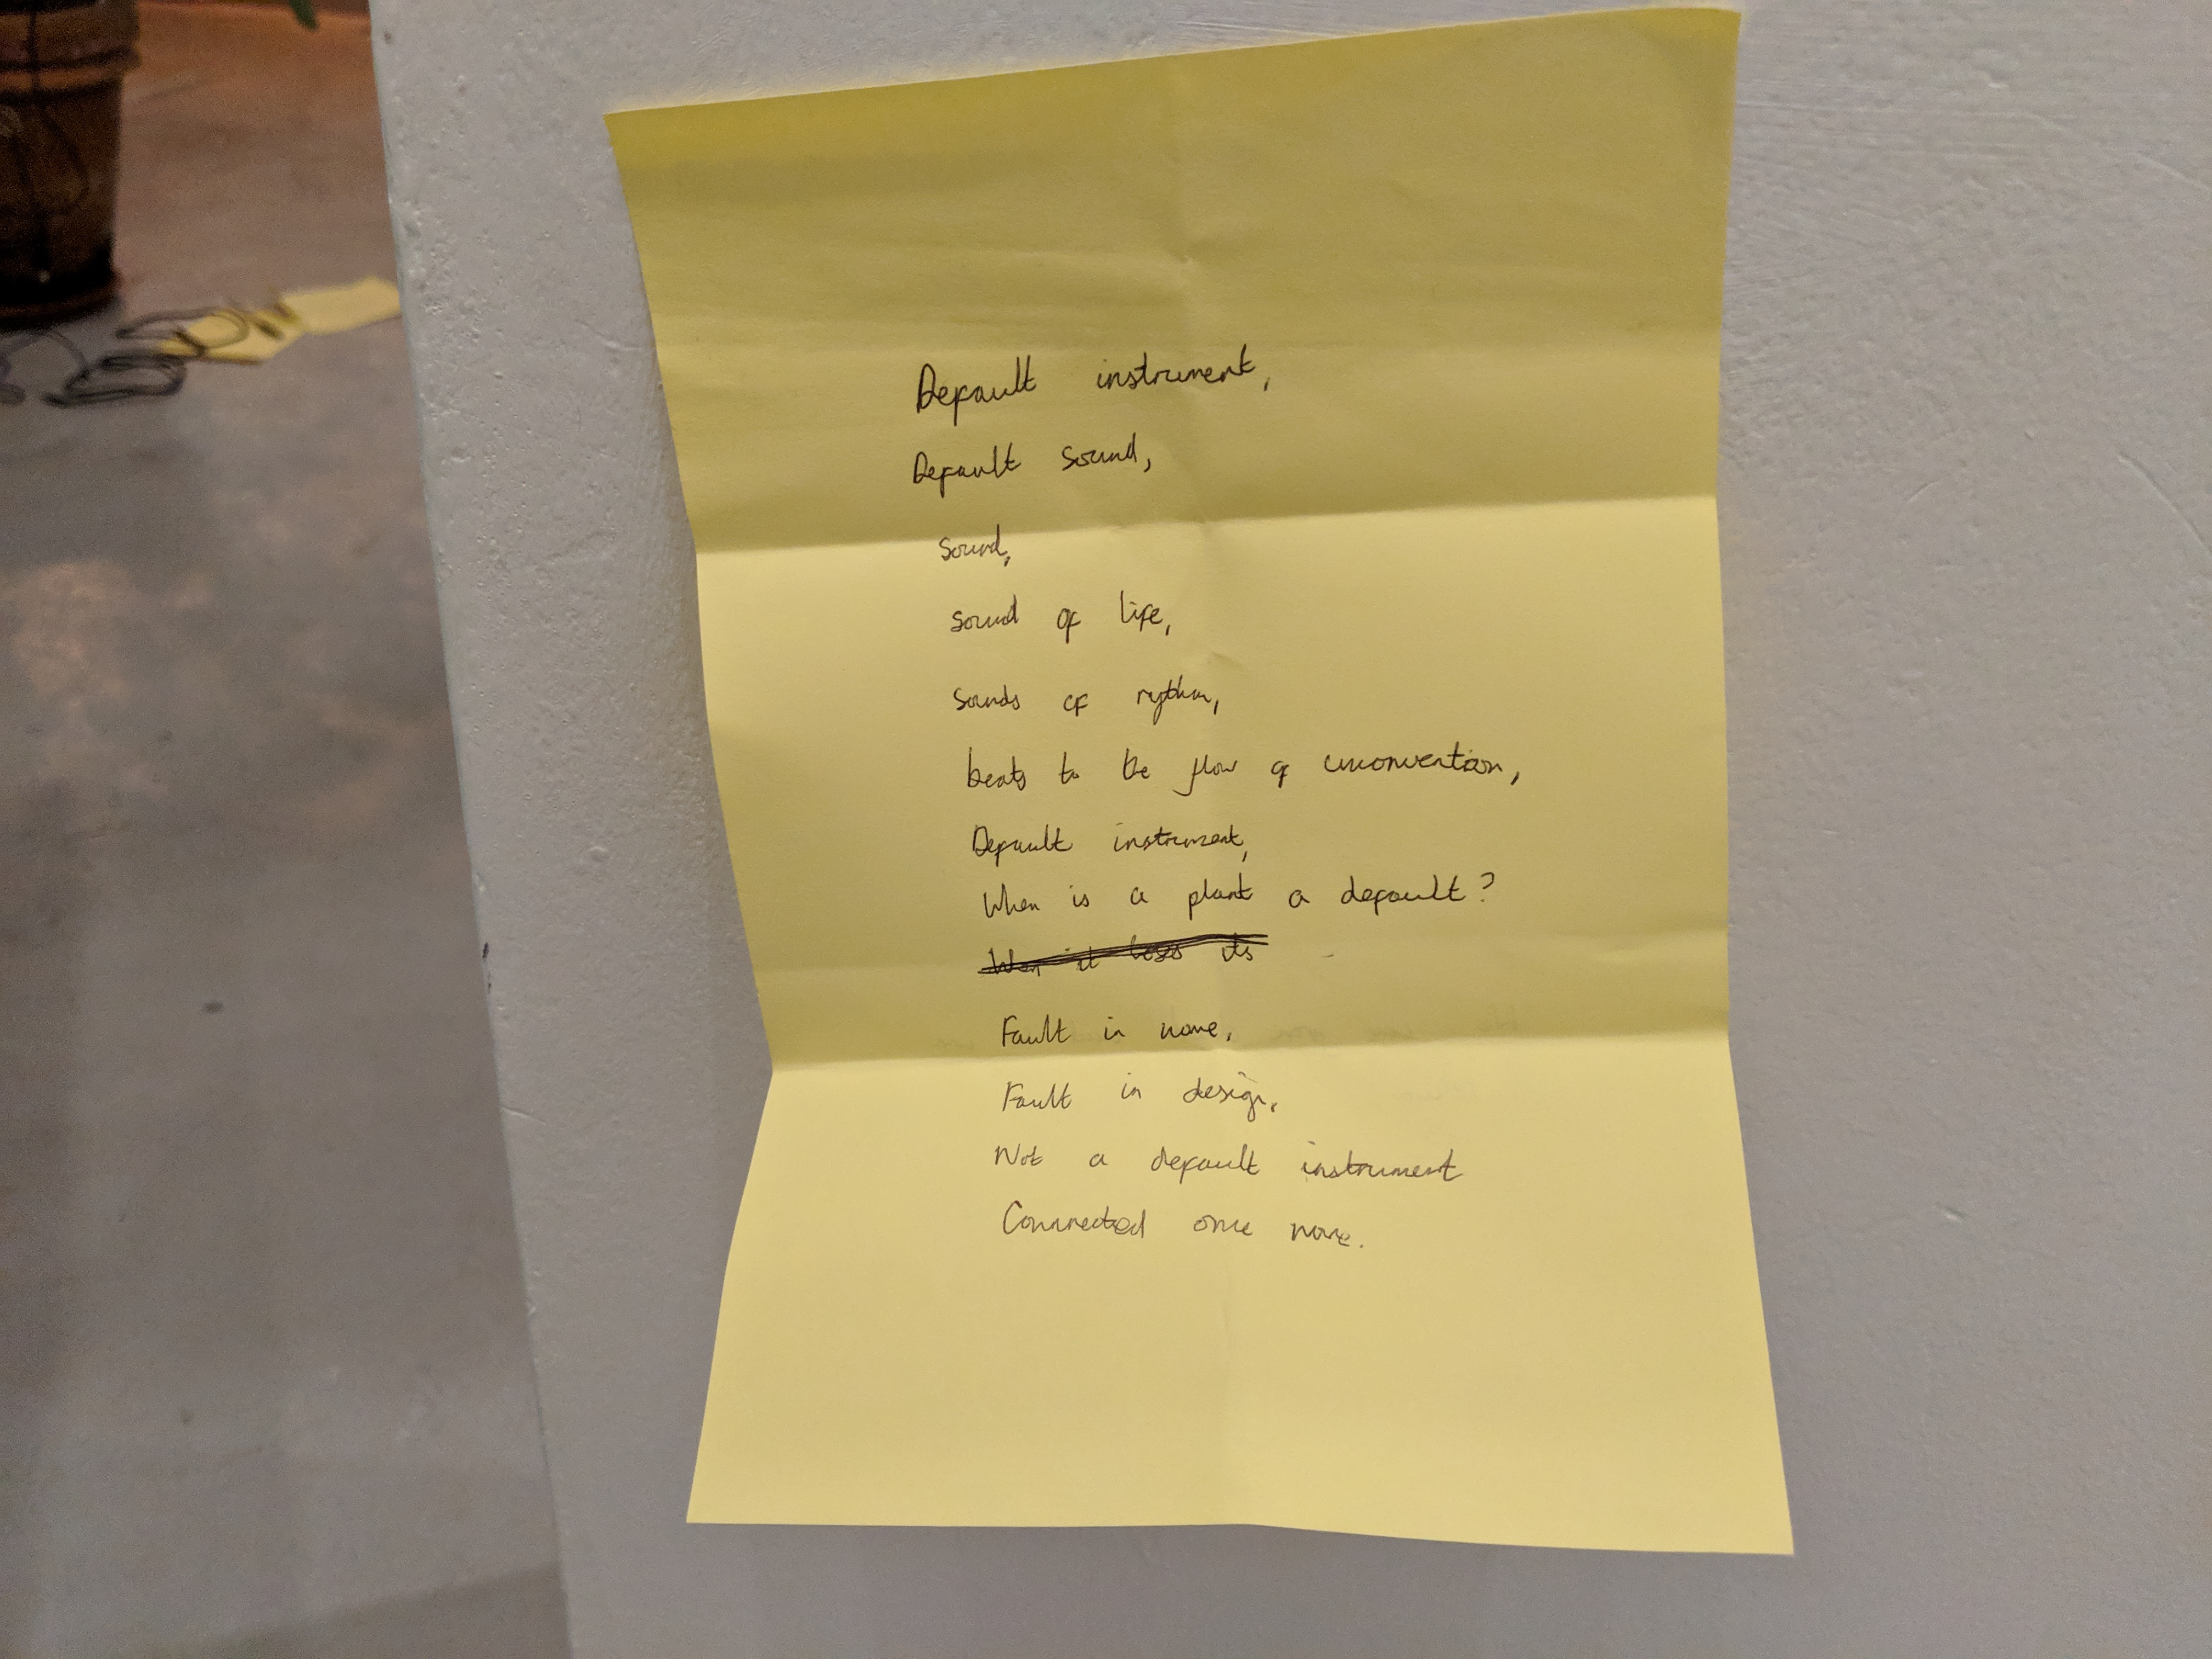 Default instrument,
Default sound,
Sound,
sound of life,
Sounds of rythm,
beats to the flow of unconvention,
Default instrument,
When is a plant a default?
When it loses its
Fault in name,
Fault in design,
Not a default instrument
Connected once more.